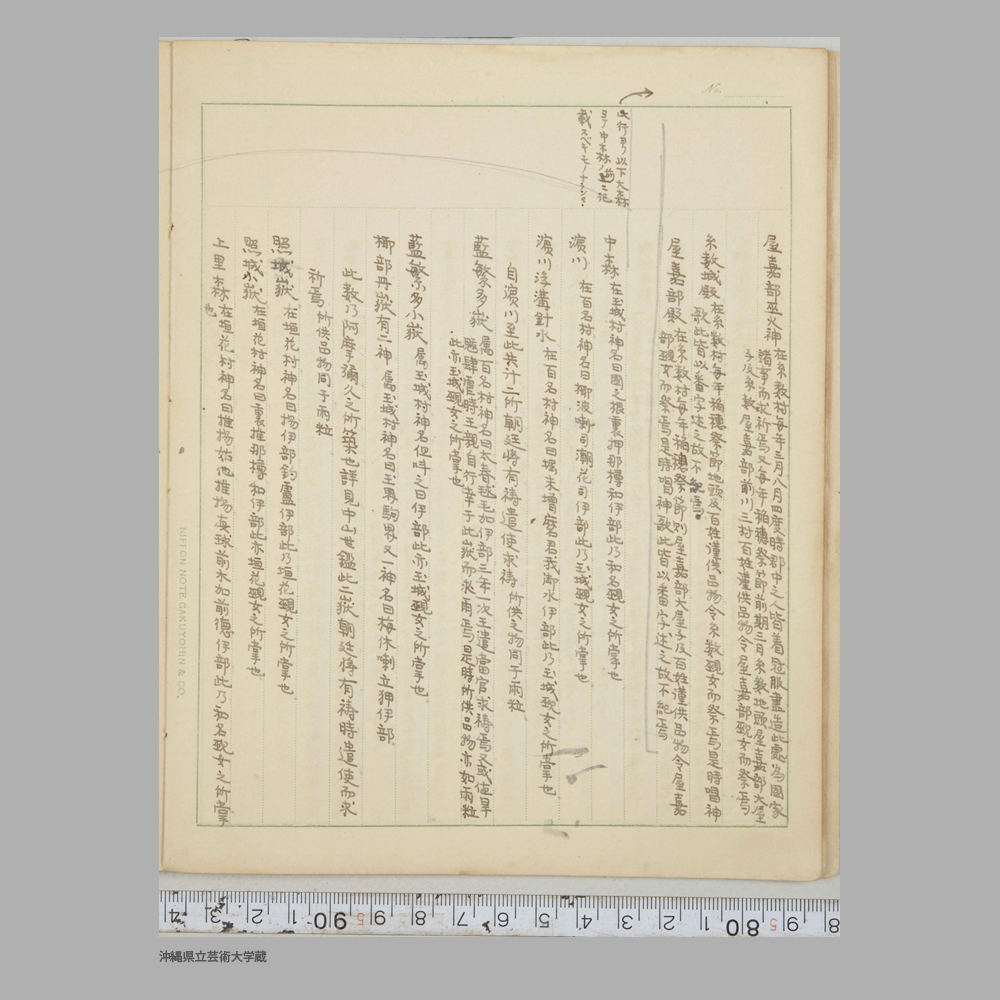 No.
此行ヨリ以下大森
ヨリ中森ノ前ニ記
載スベキモノナランカ
屋嘉部巫火神 在糸数村毎年三月八月四度時郡中之人皆着冠服盡造此處為國家
諸事而求祈焉又毎年稲穂祭節前期三日糸数地頭屋嘉部大屋
子及糸数屋嘉部前川三村百姓謹供品物令屋嘉部覡女而祭焉
糸数城殿 在糸数村毎年稲穂祭節地頭及百姓謹供品物令糸数覡女而祭焉是時唱神
歌此皆以番字述之故不紀焉
屋嘉部殿 在糸数村毎年稲穂祭節則屋嘉部大屋子及百姓謹供品物令屋嘉
部覡女而祭焉是時唱神歌此皆以番字述之故不紀焉
中森 在玉城村神名曰國之根裏押那櫓和伊部此乃和名覡女之所掌也
濱川 在百名村神名曰揶波喇司潮花司伊部此乃玉城覡女之所掌也
濱川浮溝針水 在百名村神名曰堝未增麽君我御水伊部此乃玉城覡女之所掌也
自濱川至此共計二所朝廷将有祷遣使求祷所供之物同于雨粒
藍繁多嶽 属百名村神名曰太春毬毛加伊部三年一次王遣當官求祷焉又或値旱
魃肆虐時王親自行幸于此嶽而求雨焉是時所供品物亦如雨粒
此亦玉城覡女之所掌也
藍繁多小嶽 属玉城村神名但呌之曰伊部此亦玉城覡女之所掌也
揶部丹嶽有二神 属玉城村神名曰玉男駒男又一神名曰梅休喇立狎伊部
此数乃阿摩弥久之所築也詳見中山世鑑此二嶽朝廷倘有祷時遣使而求
祈焉所供品物同于雨粒
照城嶽 在垣花村神名曰揚伊部釣盧伊部此乃垣花覡女之所掌也
照城小嶽 在垣花村神名曰裏推那櫓和伊部此亦垣花覡女之所掌也
上里森 在垣花村神名曰推揚姑他推揚真球前木加前德伊部此乃和名覡女之所掌
也
NIPPON NOTE GAKUYOHIN & CO.
4 3 2 1 90 9 8 7 6 5 4 3 2 1 80 9 8
沖縄県立芸術大学蔵